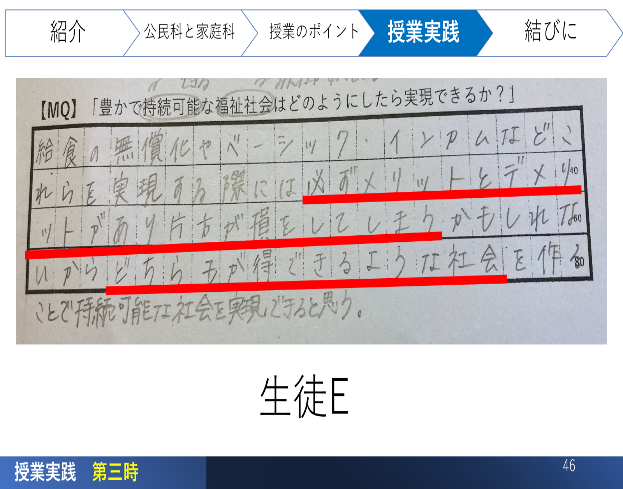 紹介
公民科と家庭科
授業のポイント
授業実践
結びに
【MQ】「豊かで持続可能な福祉社会はどのようにしたら実現できるか？」
給食の無償化やベーシック・インカムなどこ
れらを実現する際には必ずメリットとデメリ
ットがあり片方が損をしてしまうかもしれな
いからどちらもが得できるような社会を作る
ことで持続可能な社会を実現できると思う。
40
60
80
生徒E
授業実践 第三時
46